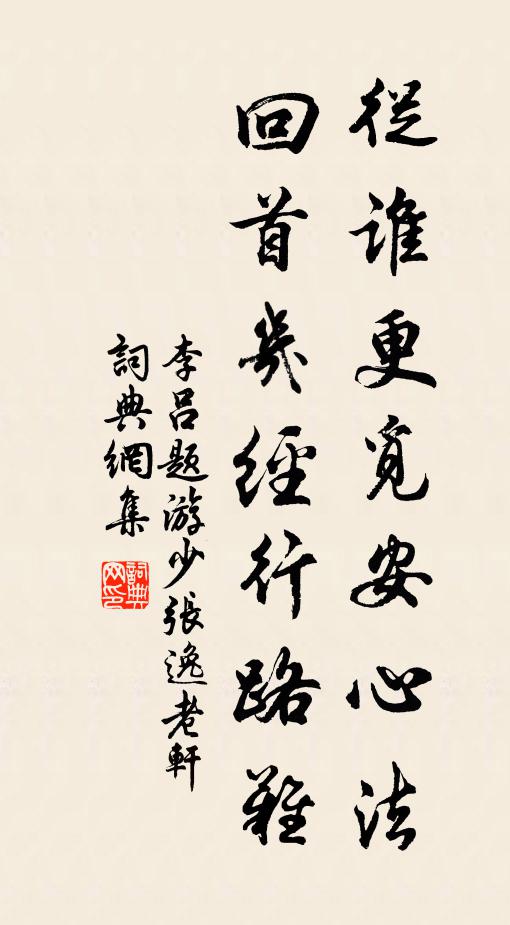 從誰更覓安心法
回首幾經行路難
李呂題游少張逸老軒
詞典網集
詞典網印